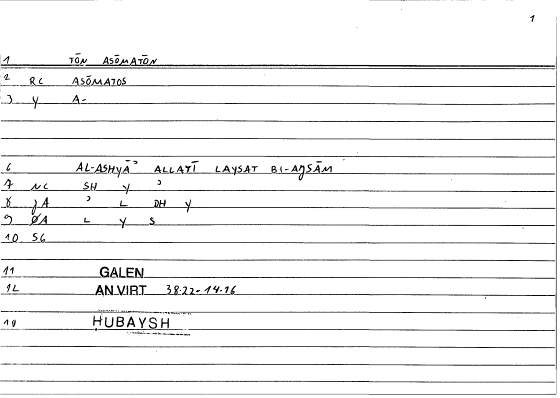 1
1 TŌN ASŌMATŌN
2 RC ASŌMATOS
3 Y A-
6 AL-ASHYĀʾ ALLATĪ LAYSAT BI-AJSĀM
7 NC SH Y ʾ
8 JA ʾ L DH Y
9 ØA L Y S
10 SG
11 GALEN
12 AN.VIRT 38.22-14.16
14 HUBAYSH